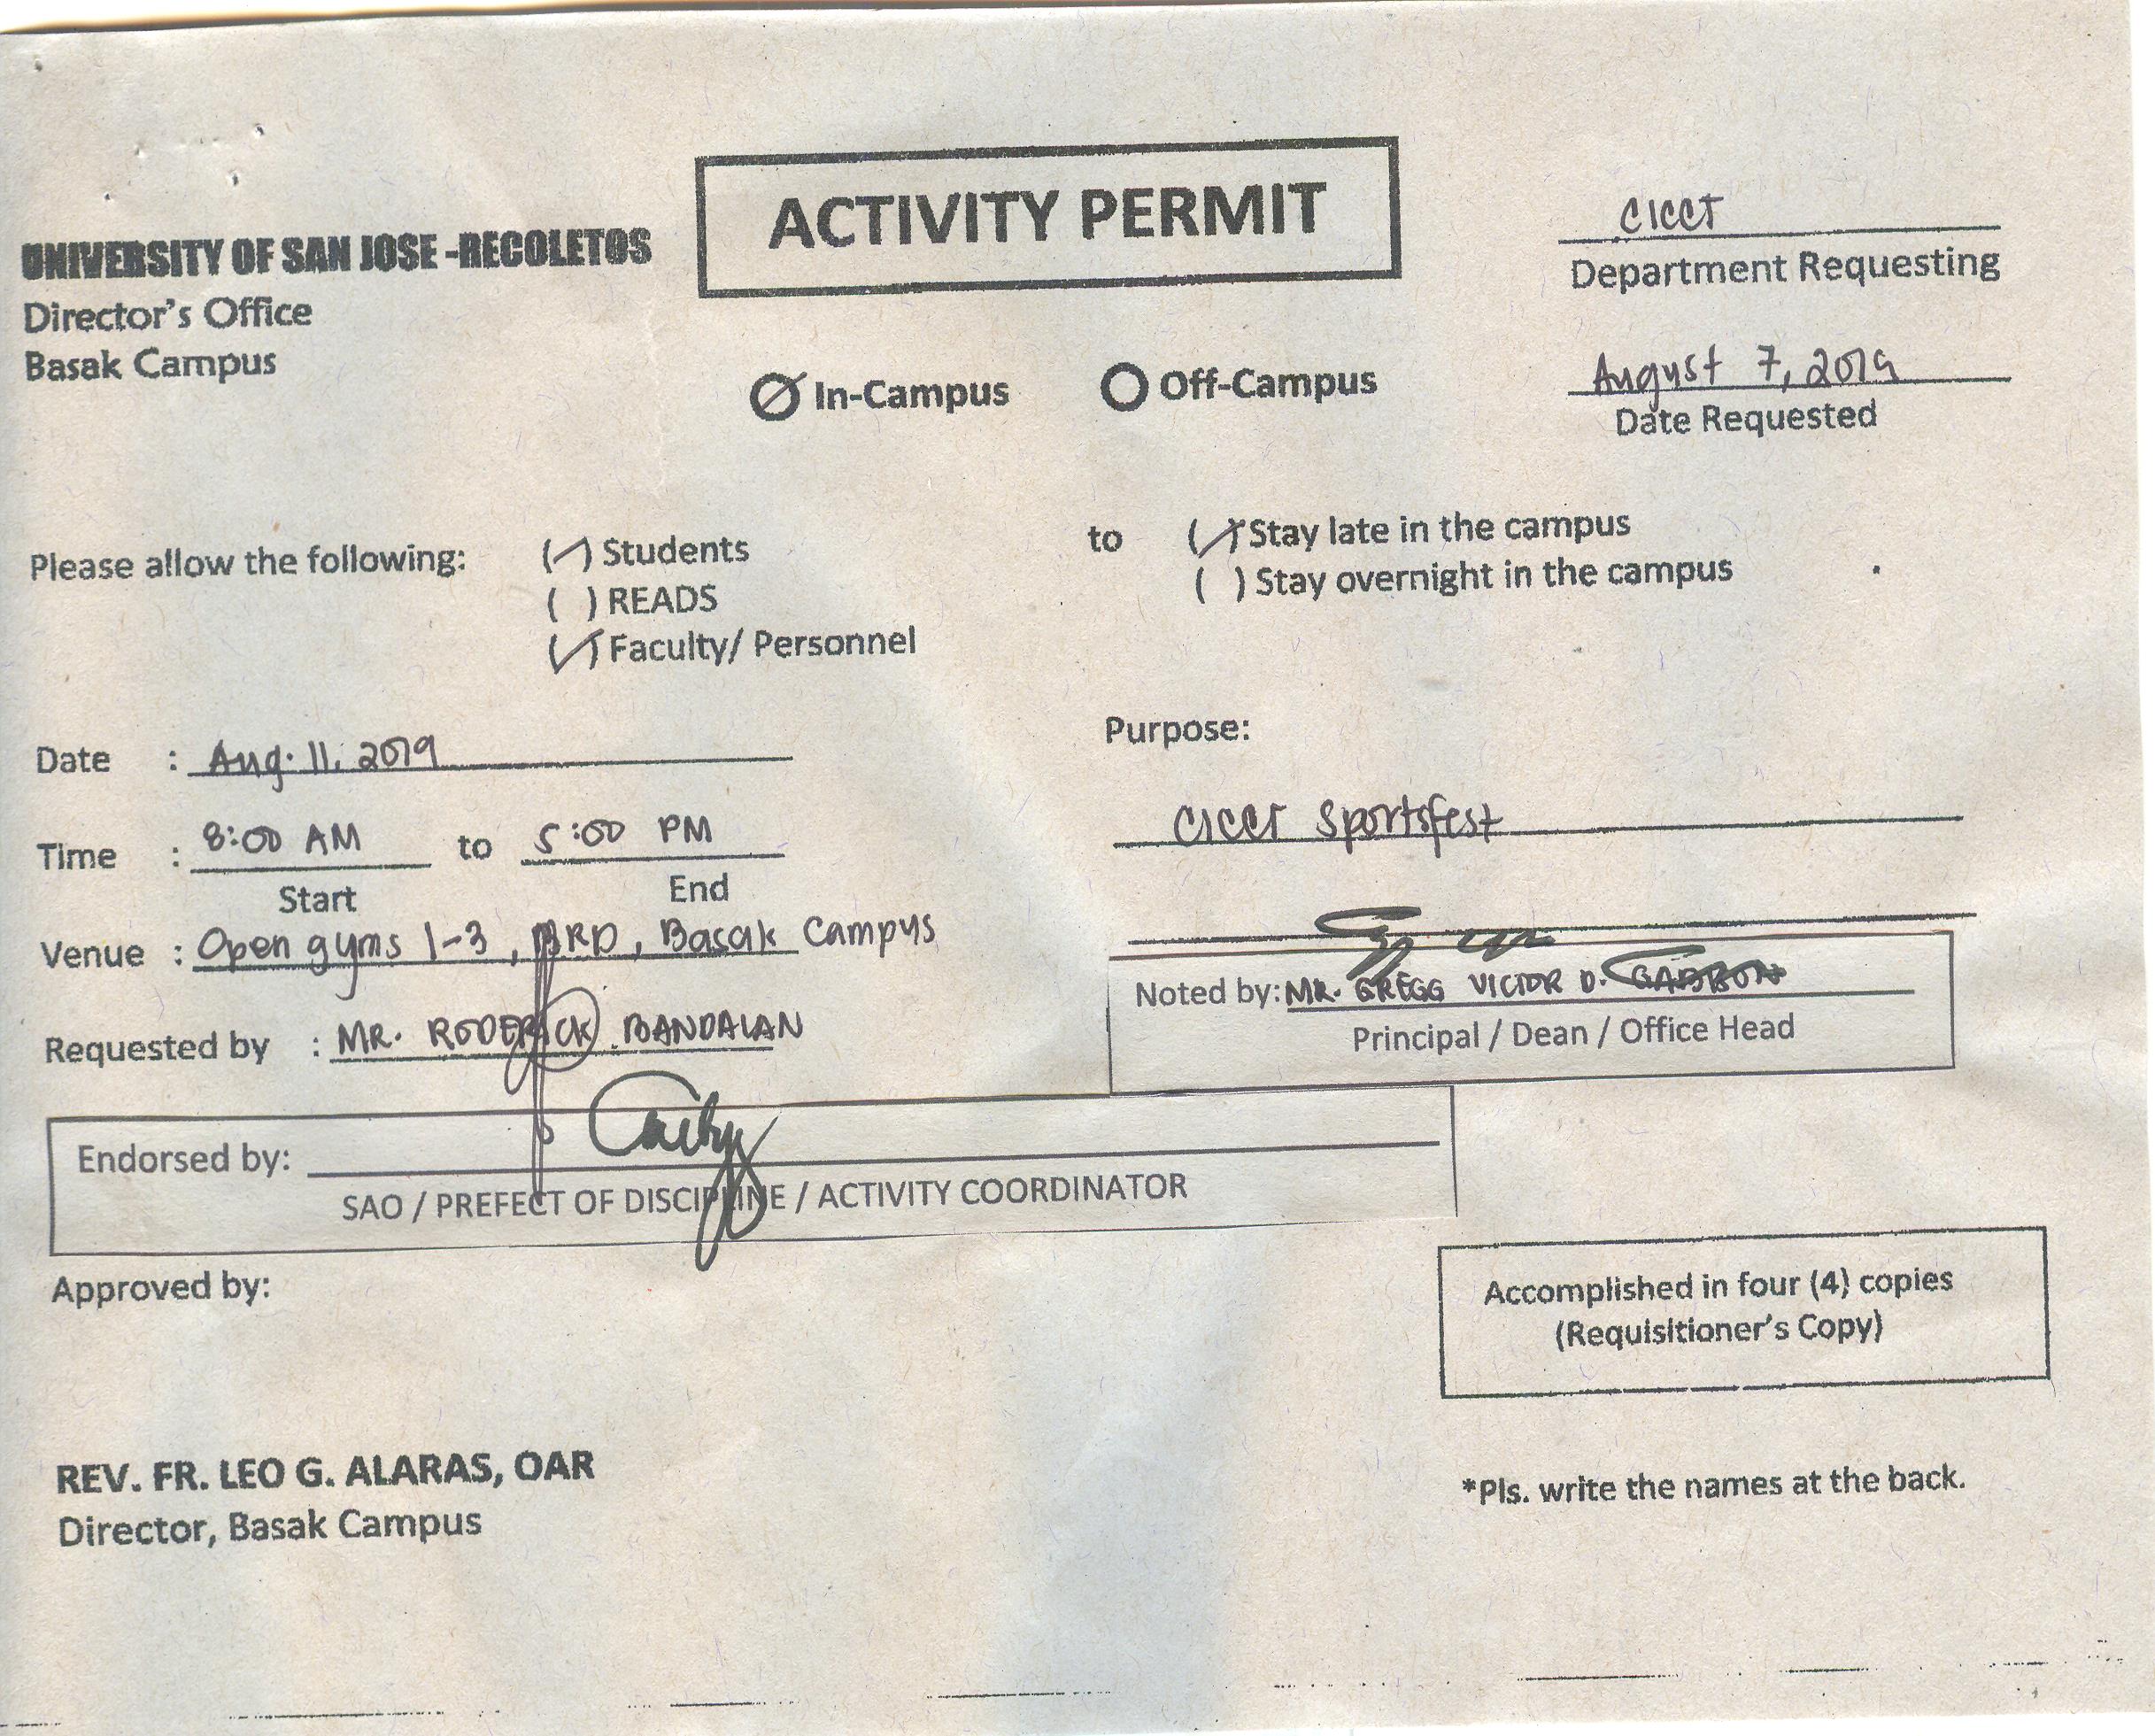 ACTIVITY PERMIT
UNIVERSITY OF SAN JOSE -RECOLETOS
Director's Office
Basak Campus
CICCT
Department Requesting
In-Campus
Off-Campus
August 7, 2019
Date Requested
Please allow the following:
(✓) Students
( ) READS
(✓) Faculty/ Personnel
to
(✓) Stay late in the campus
( ) Stay overnight in the campus
Date : Aug. 11, 2019
Time : 8:00 AM to 5:00 PM
Start End
Venue : Open gyms 1-3, BRD, Basak Campus
Requested by : MR. RODERICK BANDALAN
Purpose:
CICCT Sportsfest
Noted by: MR. GREGG VICTOR D. GABISON
Principal / Dean / Office Head
Endorsed by:
SAO / PREFECT OF DISCIPLINE / ACTIVITY COORDINATOR
Approved by:
Accomplished in four (4) copies
(Requisitioner's Copy)
REV. FR. LEO G. ALARAS, OAR
Director, Basak Campus
*Pls. write the names at the back.